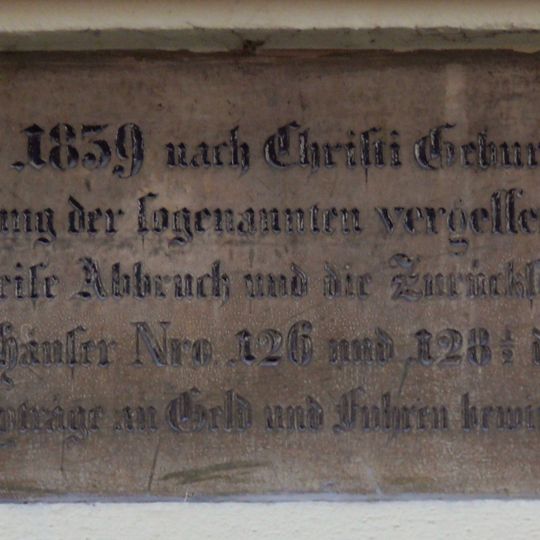 1839 nach Christi Gebur
ung der sogenannten vergesse
eise Abbruch und die Zurücks
häuser Nro. 126 und 128½
yträge an Geld und Fuhren bewi